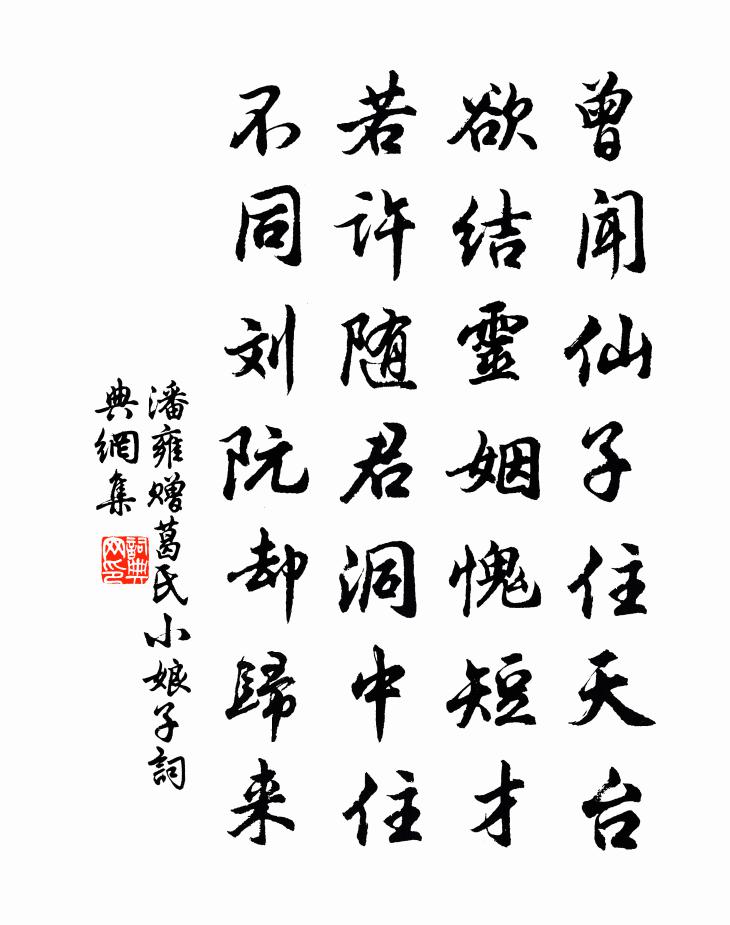 曾闻仙子住天台
欲结靈姻愧短才
若许随君洞中住
不同刘阮却歸来
潘雍赠葛氏小娘子詞
典網集
詞典
网印